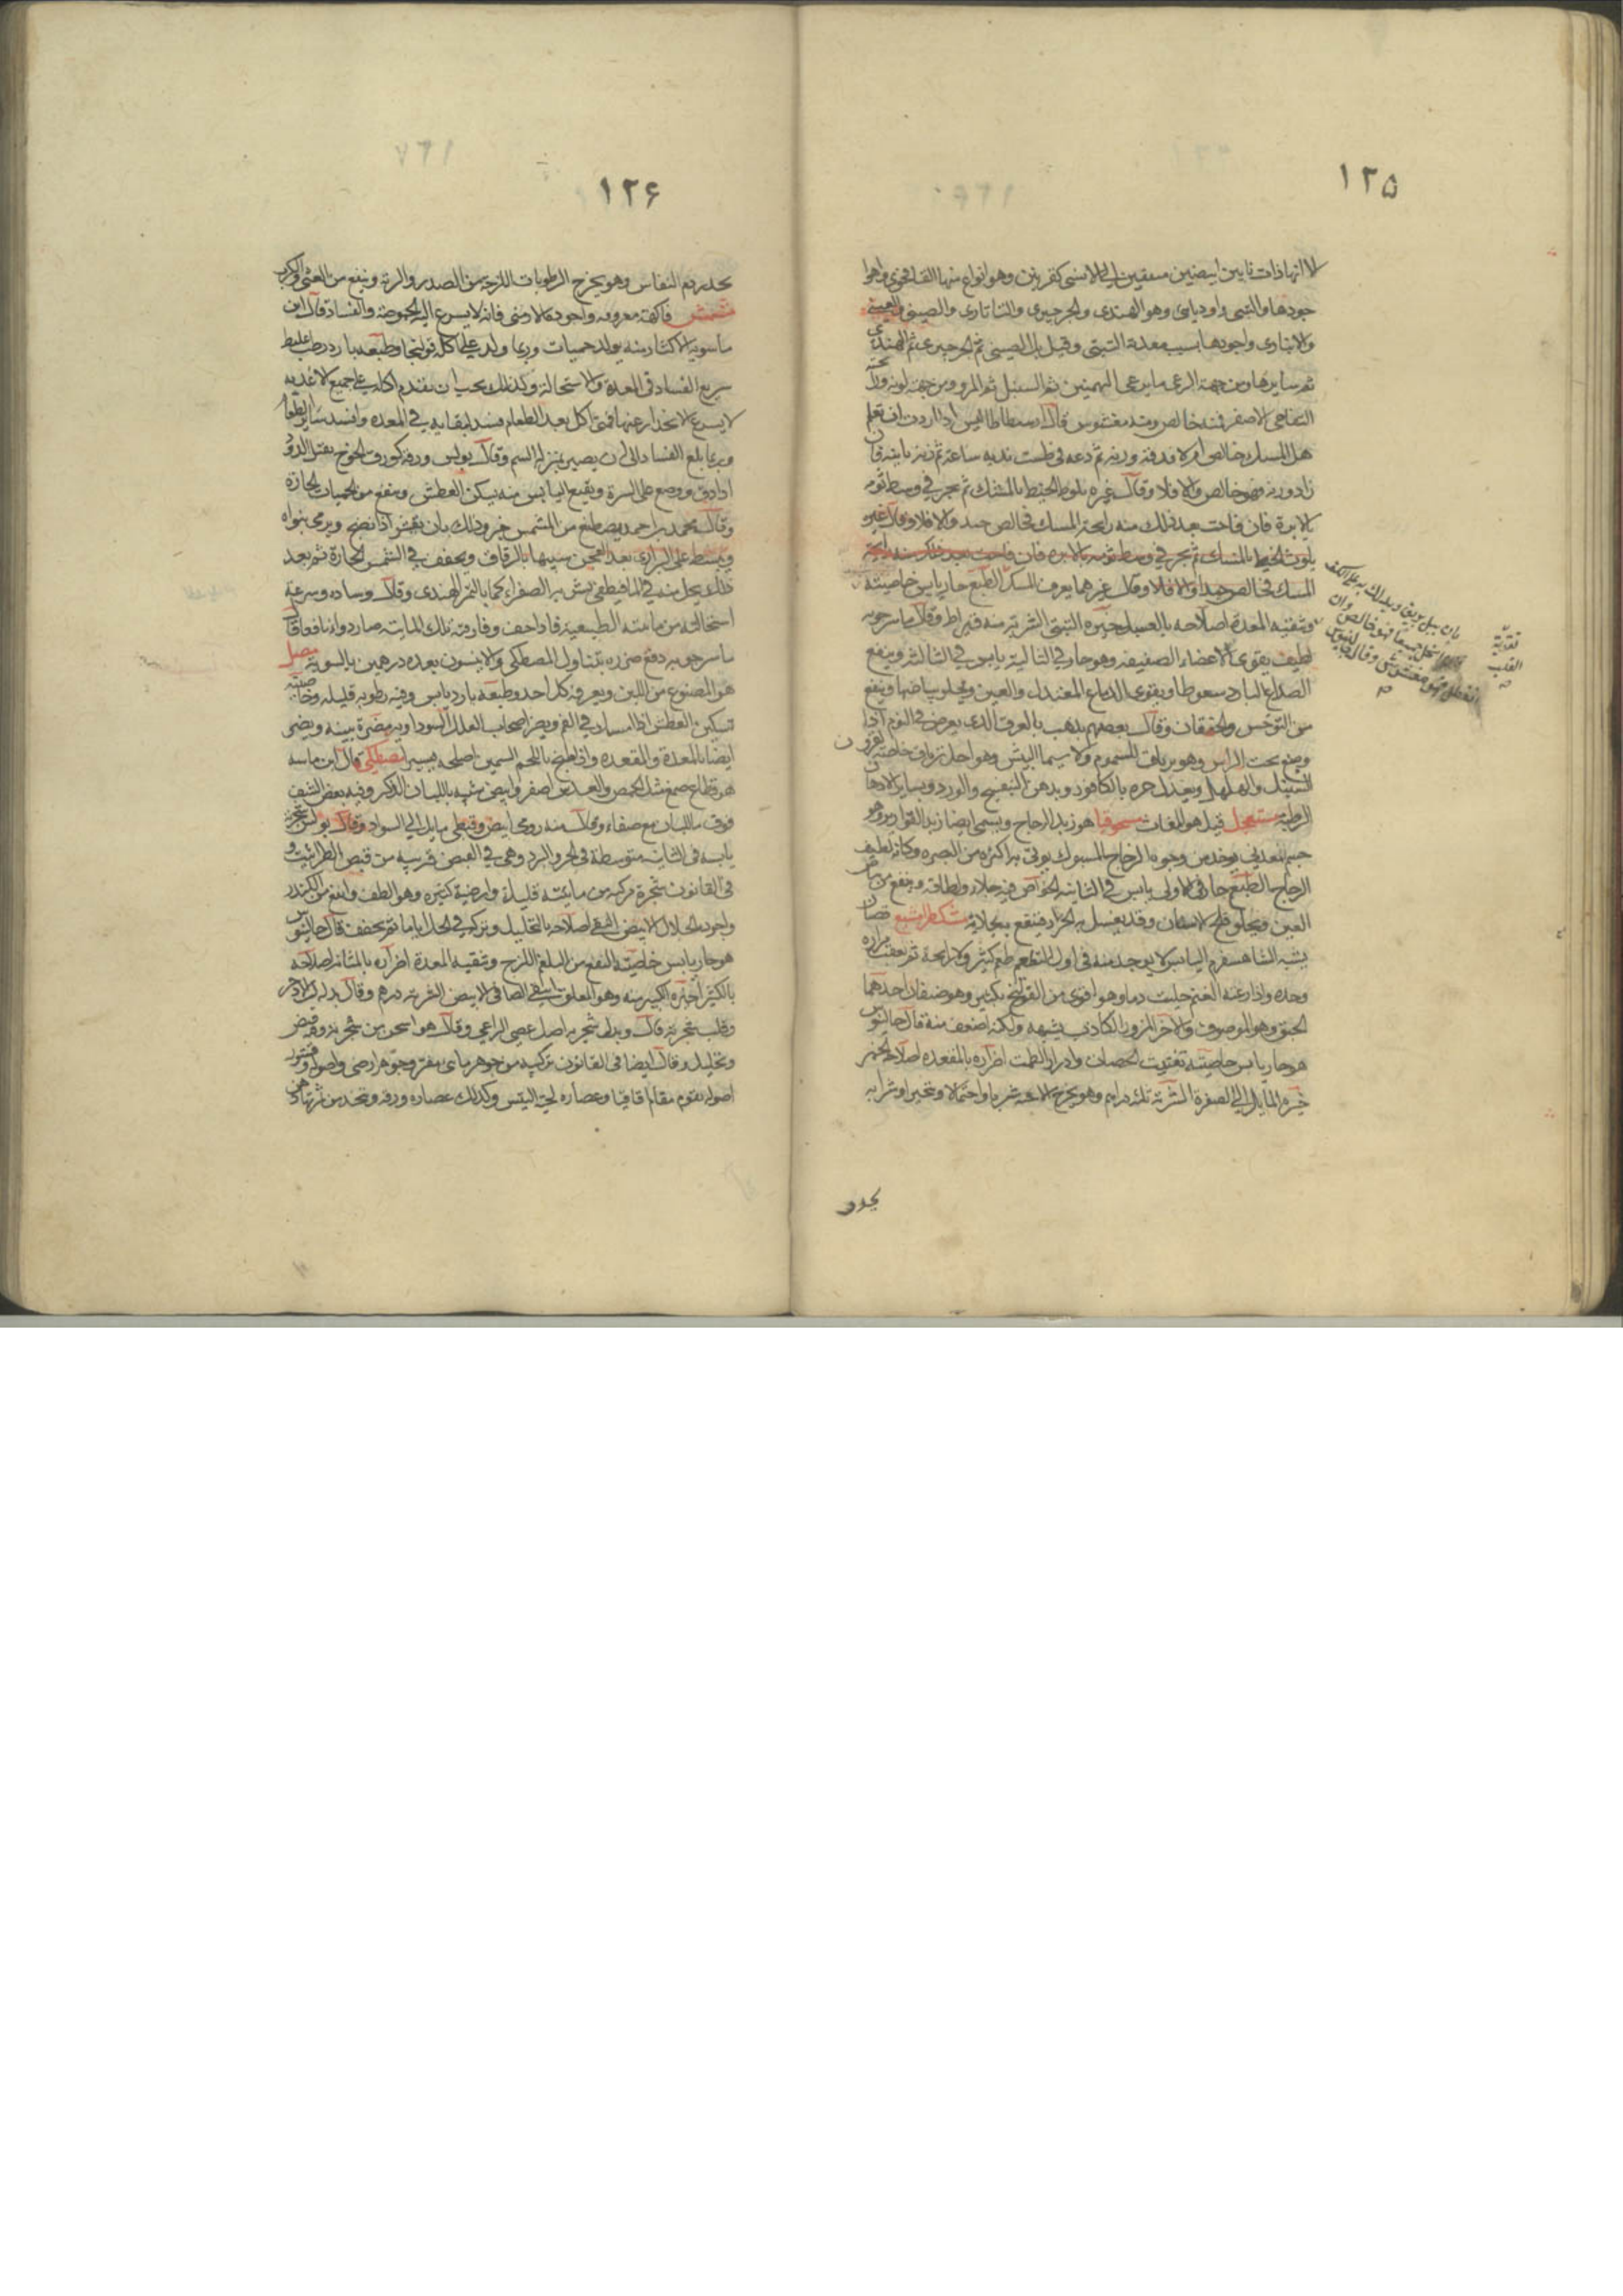 ١٢۵
الا انها ذات نابين ابيضين معقفين الى الانسى كقرنين وهو انواع منها
جودها والتبتى وهو الهندى والجرجيرى والتاتارى والصينى
واجودها بسبب معدنه التبتى وقيل بل الصينى ثم الجرجيرى ثم الهندى
ثم سايرها ومن جهة الرعى ما يرعى البهمنين ثم السنبل ثم المر ومن جهة لونه
التفاحى الاصفر فمنه خالص ومنه مغشوش قال ارسطاطاليس اذا اردت ان تعلم
هل المسك خالص ام لا فدقه وزنه ثم دعه فى طست ندية ساعة ثم زنه ثانية فان
زاد وزنه فهو خالص والا فلا وقال غيره يلوط الخيط بالمسك ثم يجر فى وسط ثومه
بالابرة فان فاحت بعد ذلك منه رايحة المسك فخالص جيد والا فلا وقال غيره
يلوث الخيط بالمسك ثم يجر فى وسط ثومه بالابره فان فاحت بعد ذلك منه رايحة
المسك فخالص جيد والا فلا وقال غيرهما يعرف المسك الطبع حار يابس خاصيته
وتنقيه المعدة اصلاحه بالعسل خيره التبتى الشربة منه قيراط وقال ماسرجويه
لطيف يقوى الاعضاء الضعيفه وهو حار فى الثانية يابس فى الثالثه وينفع
الصداع البارد سعوطا ويقوى الدماغ المعتدل والعين ويجلو بياضها وينفع
من التوحش والخفقان وقال بعضهم يذهب بالعرق الذى يعرض فى النوم اذا
وضع تحت الراس وهو ترياق السموم ولا سيما البيش وهو اجل ترياق خاصة لقرون
السنبل والهلهل ويعدل حره بالكافور وبدهن البنفسج والورد وبساير الادهان
الرطبة مستعجل قيل هو البغاث مسحوقيا هو زبد الزجاج ويسمى ايضا زبد القوارير وهو
جسم معدنى يوخذ من وجوه الزجاج المسبوك يوتى به اكثره من البصره وكانه لطيف
الزجاج الطبع حار فى الاولى يابس فى الثانيه الخواص فيه جلاء ولطافة وينفع من بياض
العين ويجلو قلح الاسنان وقد يغسل به الجراد فينقع بجلايه مشكطرامشيع قضبان
يشبه الشاهسفرم اليابس لا يوجد منه فى اول التطعم طعم كثير ولا رايحة ثم يعقب مراره
وحده واذا رعته الغنم حلبت دما وهو اقوى من الفوتنج بكثير وهو صنفان احدهما
الحبق وهو الموصوف والاخر المزور الكاذب يشبهه ولكنه اضعف منه قال جالينوس
هو حار يابس خاصيته تفتيت الحصاة وادرار الطمث اضراره بالمقعده اصلاحه
خيره المايل الى الصفرة الشربة ثلثه دراهم وهو يخرج الاجنة شربا واحتمالا وتبخيرا وشرابه
بان يبل بريق ويدلك به على الكف
انحل سريعا فهو خالص وان
فهو مغشوش وقال جالينوس
تقوية
القلب
يحدر
١٢۶
يحدر دم النفاس وهو يخرج الرطوبات اللزجه من الصدر والريه وينفع من الغثى والكرب
مشمش فاكهة معروفه واجوده الارمنى فانه لا يسرع اليه الحموضة والفساد قال ابن
ماسويه الاكثار منه يولد حميات وربما ولد على اكله قولنجا وطبعه بارد رطب غليظ
سريع الفساد فى المعدة والاستحالة وكذلك يجب ان يقدم اكله على جميع الاغذيه
لا يسرع الانحدار عنها فمتى اكل بعد الطعام فسد لبقايه فى المعده وافسد ساير الطعام
وربما بلغ الفساد الى ان يصير بمنزلة السم وقال بولس ورقه كورق الخوخ يقتل الدود
اذا دق ووضع على السرة ونقيع اليابس منه يسكن العطش وينفع من الحميات الحارة
وقال محمد بن احمد يصطنع من المشمش خبز وذلك بان يقشر اذا نضج ويرمى بنواه
ويبسط على البزارى بعد العجن شبيها بالرقاق ويجفف فى الشمس الحارة ثم بعد
ذلك يحل منه فى الما فيطفى بشربه الصفراء كما بالتمر الهندى وقال وساده وسرعة
استحالته من مائيته الطبيعية فاذا جفف وفارقته تلك المائيه صار دواء نافعا قال
ماسرجويه دفع ضرره بتناول المصطكى والانيسون بعده درهمين بالسوية مصل
هو المصنوع من اللبن ويعرفه كل احد وطبعه بارد يابس وفيه رطوبه قليله وخاصيته
تسكين العطش اذا امسك فى الفم ويضر اصحاب العلل السوداويه مضرة بينه ويضر
ايضا بالمعدة والمقعده واذا طبخ باللحم السمين اصلحه يسيرا مصطكى قال ابن ماسه
هو قطاع صمغ مثل الحمص والعدس اصفر وابيض شبيه باللبان الذكر وفيه بعض الشبه
فوق ماللبان مع صفاء وقال منه رومى ابيض وقبطى مايل الى السواد وقال بولس شجرة
يابسه فى الثانيه متوسطة فى الحر والبرد وهى فى القبض قريبه من قبض الطراثيث و
فى القانون شجرة مركبه من مائيه قليلة وارضية كثيره وهو الطف وانفع من الكندر
واجوده الحلال الابيض النقى اصلاحه بالتحليل وتركيبه فى الخل اياما ثم يجفف قال جالينوس
هو حار يابس خاصيته النفع من البلغم اللزج وتنقيه المعدة اضراره بالمثانه اصلاحه
بالكثيرا خيره الكبير منه وهو المعلوب النقى الصافى الابيض الشربة درهم وقال بدله
وقلب شجرته قال وبدل شجرته اصل عصى الراعى وقال هو اسخن من شجرته وفيه قبض
وتحليل وقال ايضا فى القانون تركيبه من جوهر مائى مفتر وجوهر ارضى واصوله وقشور
اصوله تقوم مقام اقاقيا وعصاره لحية التيس وكذلك عصاره ورقه ويتخذ من ثمرتها دهن